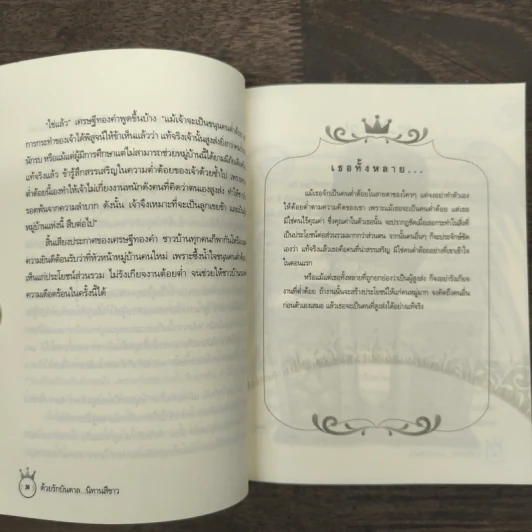 "ใช่แล้ว" เศรษฐีทองคำพูดขึ้นบ้าง "แม้เจ้าจะเป็นขนุนคนต่ำต้อย
การกระทำของเจ้าได้พิสูจน์ให้ข้าเห็นแล้วว่า แท้จริงเจ้านั้นสูงส่งยิ่งกว่า
นักรบ หรือแม้แต่ผู้มีการศึกษาแต่ไม่สามารถช่วยหมู่บ้านนี้ได้ยามมีภัย
แท้จริงแล้ว ข้ารู้สึกสรรเสริญในความต่ำต้อยของเจ้าด้วยซ้ำไป เพราะ
ต่ำต้อยนี้เองทำให้เจ้าไม่เกี่ยงงานหนักดังคนที่คิดว่าตนเองสูงส่ง ทำให้
รอดพ้นจากความลำบาก ดังนั้น เจ้าจึงเหมาะที่จะเป็นลูกเขยข้า และเป็น
หมู่บ้านแห่งนี้ สืบต่อไป"
สิ้นเสียงประกาศของเศรษฐีทองคำ ชาวบ้านทุกคนก็พากัน
ความยินดีต้อนรับว่าที่หัวหน้าหมู่บ้านคนใหม่ เพราะซึ้งน้ำใจขนุนคน
เห็นแก่ประโยชน์ส่วนรวม ไม่รังเกียจงานต้อยต่ำ จนช่วยให้ชาวบ้าน
ความเดือดร้อนในครั้งนี้ได้
ด้วยรักบันดาล...นิทานสีขาว
เธอทั้งหลาย...
แม้เธอจักเป็นคนต่ำต้อยในสายตาของใครๆ แต่จงอย่าทำตัวเอง
ให้ต้อยต่ำตามความคิดของเขา เพราะแม้เธอจะเป็นคนต่ำต้อย แต่เธอ
มิใช่คนไร้คุณค่า ซึ่งคุณค่าในตัวเธอนั้น จะปรากฏชัดเมื่อเธอกระทำในสิ่งที่
เป็นประโยชน์ต่อส่วนรวมมากกว่าส่วนตน จากนั้นคนอื่นๆ ก็จะประจักษ์ชัด
เองว่า แท้จริงแล้วเธอคือคนที่น่าสรรเสริญ มิใช่คนต่ำต้อยอย่างที่เขาเข้าใจ
ในตอนแรก
หรือแม้แต่เธอทั้งหลายที่ถูกยกย่องว่าเป็นผู้สูงส่ง ก็จงอย่ารังเกียจ
งานที่ต่ำต้อย ถ้างานนั้นจะสร้างประโยชน์ให้แก่คนหมู่มาก จงคิดถึงคนอื่น
ก่อนตัวเองเสมอ แล้วเธอจะเป็นคนที่สูงส่งได้อย่างแท้จริง